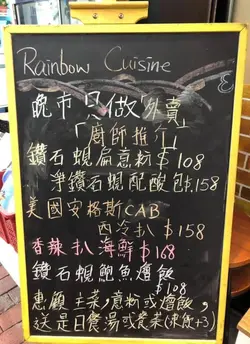 Rainbow Cuisine
晚市只做「外賣」
「廚師推介」
鑽石蜆扁意粉 $108
淨鑽石蜆配酸包 $158
美國安格斯CAB
西冷扒 $158
香辣扒海鮮 $168
鑽石蜆鮑魚燴飯
$108
惠顧主菜,意粉或燴飯,
送是日餐湯或餐菜(凍飲+3)